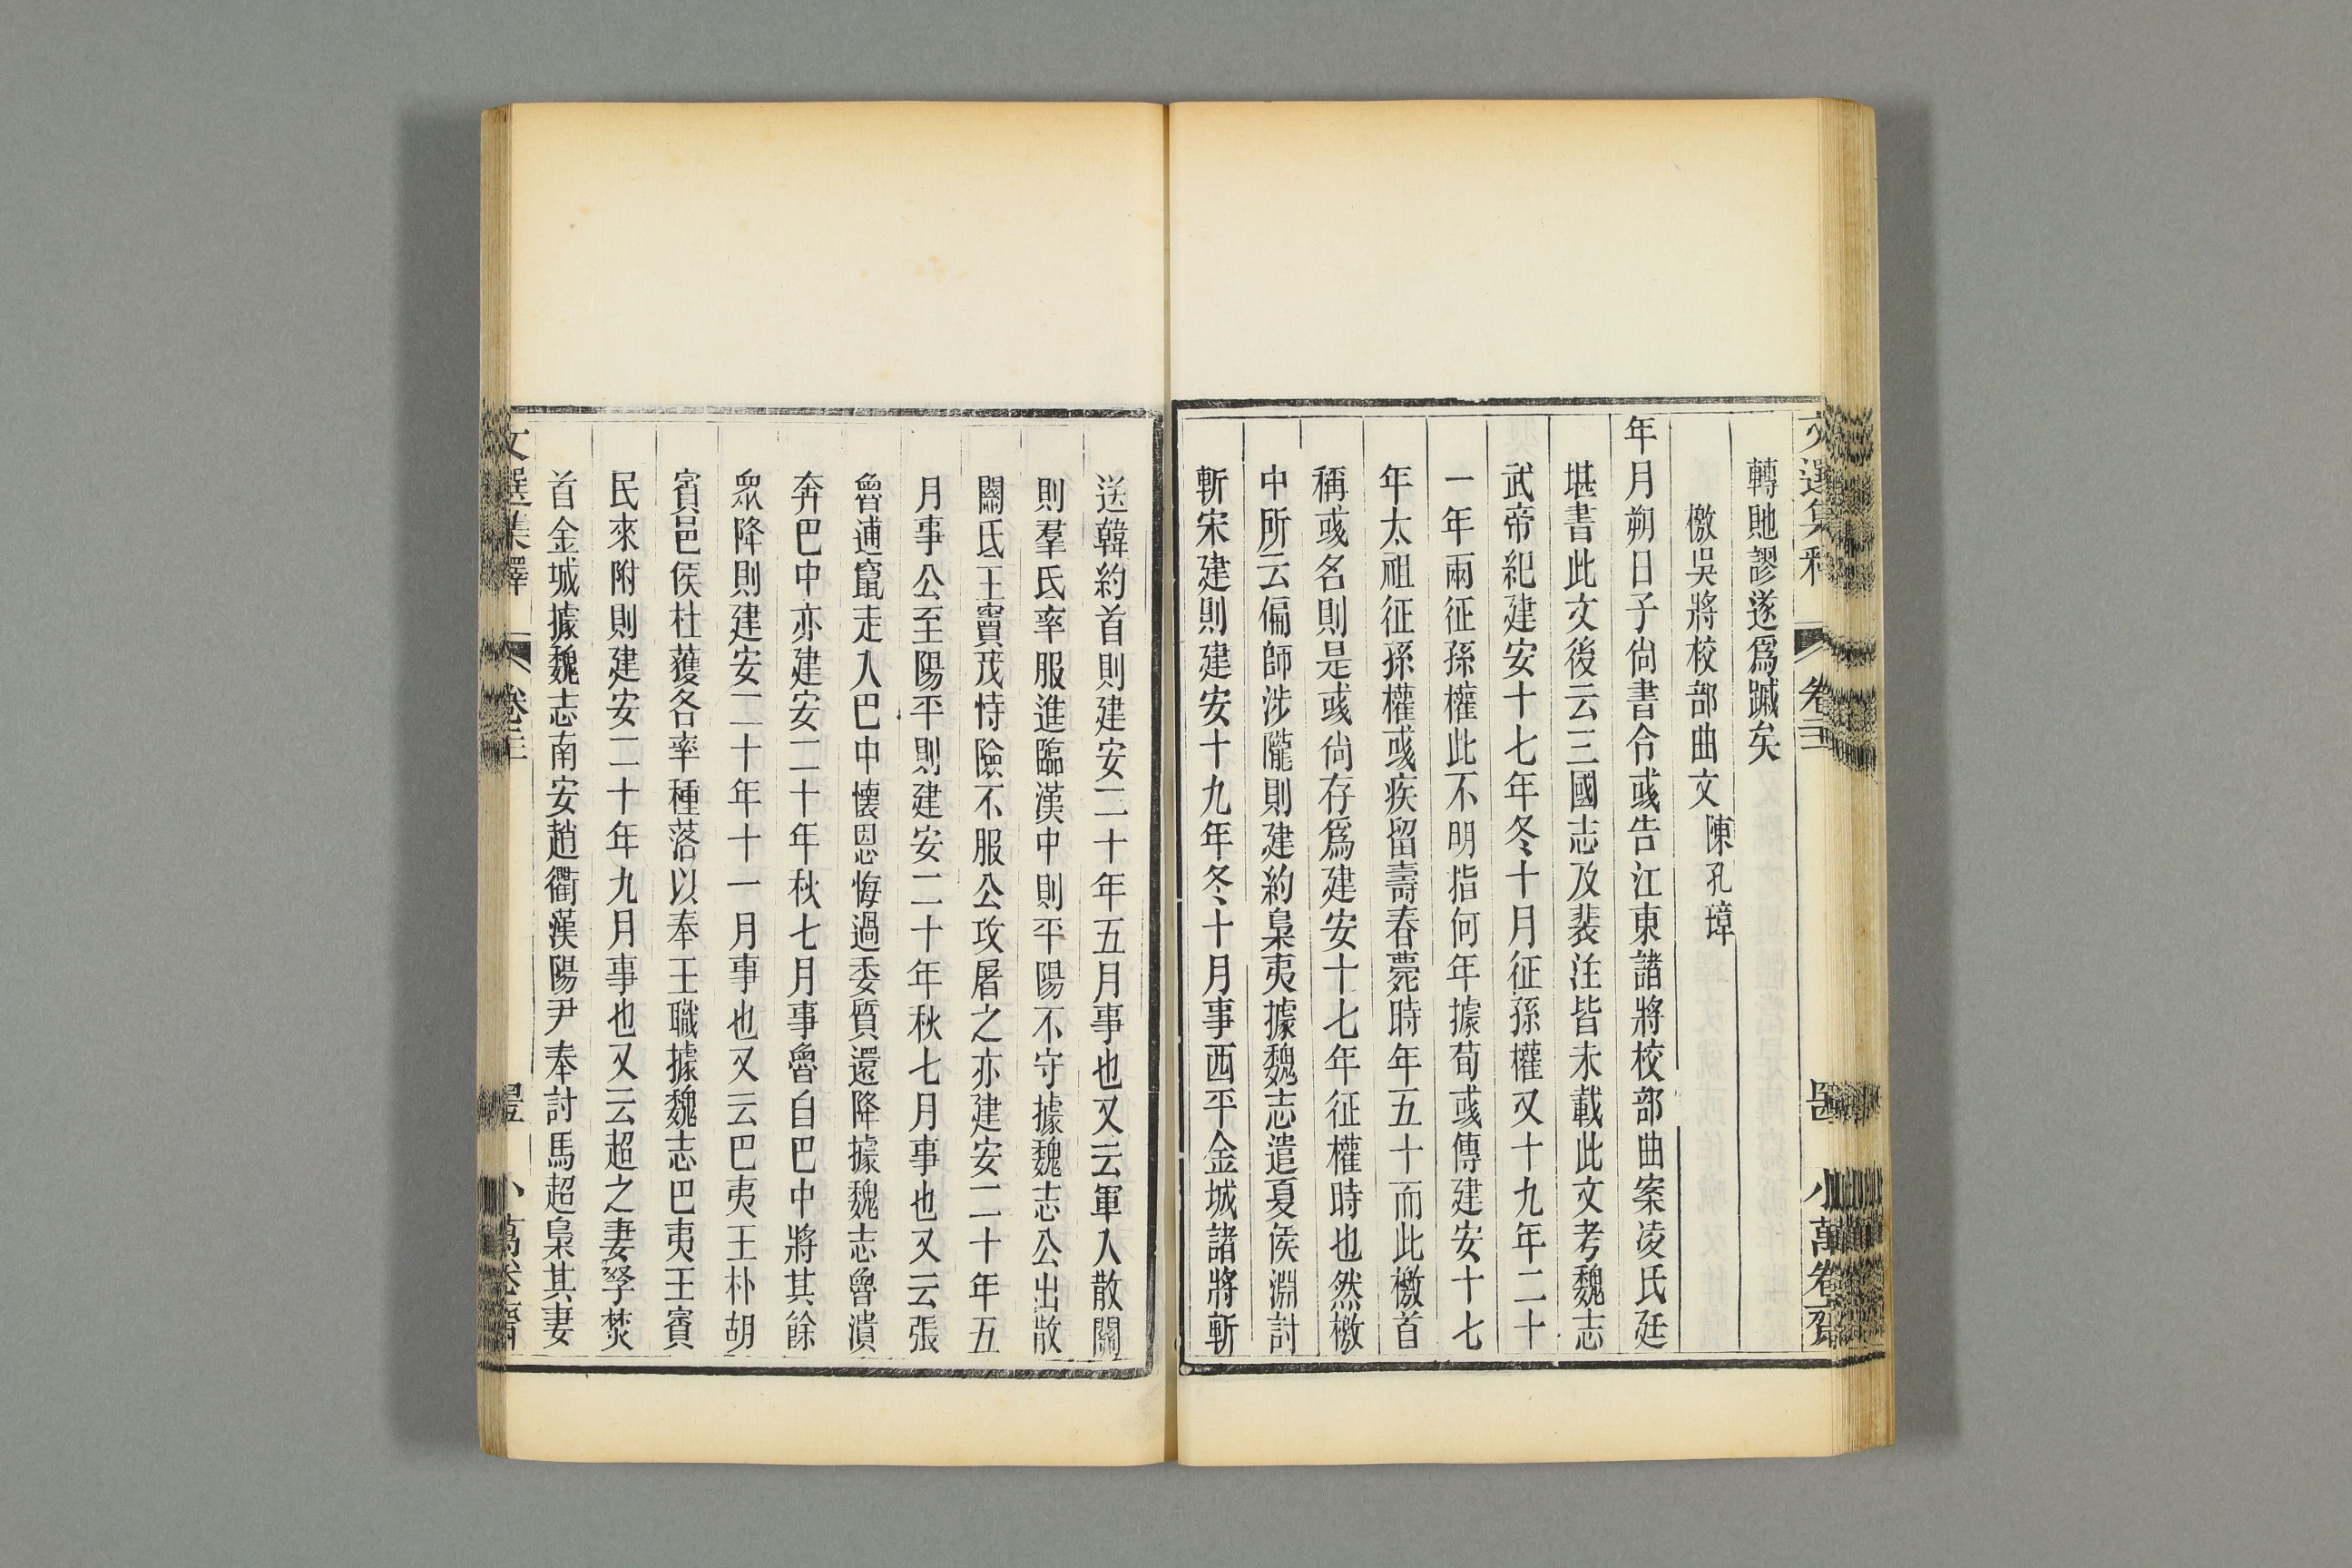 轉貤謬遂爲踬矣
檄吳將校部曲文 陳孔璋
年月朔日子尙書令彧告江東諸將校部曲案凌氏廷
堪書此文後云三國志及裴注皆未載此文考魏志
武帝紀建安十七年冬十月征孫權又十九年二十
一年兩征孫權此不明指何年據荀彧傳建安十七
年太祖征孫權彧疾留壽春薨時年五十而此檄首
稱彧名則是彧尙存爲建安十七年征權時也然檄
中所云偏師涉隴則建約梟夷據魏志遣夏侯淵討
斬宋建則建安十九年冬十月事西平金城諸將斬
送韓約首則建安二十年五月事也又云軍入散關
則羣氐率服進臨漢中則平陽不守據魏志公出散
關氐王竇茂恃險不服公攻屠之亦建安二十年五
月事公至陽平則建安二十年秋七月事也又云張
魯逋竄走入巴中懷恩悔過委質還降據魏志魯潰
奔巴中亦建安二十年秋七月事魯自巴中將其餘
眾降則建安二十年十一月事也又云巴夷王朴胡
賨邑侯杜蒦各率種落以奉王職據魏志巴夷王賨
民來附則建安二十年九月事也又云超之妻孥焚
首金城據魏志南安趙衢漢陽尹奉討馬超梟其妻